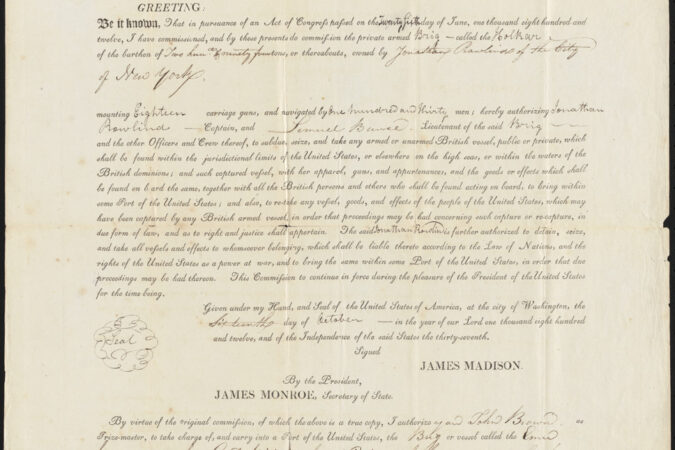 GREETING:
Be it known, That in pursuance of an Act of Congress passed on the Twenty Sixth day of June, one thousand eight hundred and
twelve, I have commissioned, and by these presents do commission the private armed Brig — called the Holkar
of the burthen of Two hun tons, or thereabouts, owned by Jonathan Rowlind of the City
of New York.
mounting Eighteen carriage guns, and navigated by One hundred and thirty men; hereby authorizing Jonathan
Rowlind — Captain, and Lieutenant of the said Brig —
and the other Officers and Crew thereof, to subdue, seize, and take any armed or unarmed British vessel, public or private, which
shall be found within the jurisdictional limits of the United States, or elsewhere on the high seas, or within the waters of the
British dominions; and such captured vessel, with her apparel, guns, and appurtenances, and the goods or effects which shall
be found on board the same, together with all the British persons and others who shall be found acting on board, to bring within
some Port of the United States; and also, to re-take any vessel, goods, and effects of the people of the United States, which may
have been captured by any British armed vessel, in order that proceedings may be had concerning such capture or re-capture, in
due form of law, and as to right and justice shall appertain. The said Jonathan Rowlin is further authorized to detain, seize,
and take all vessels and effects to whomsoever belonging, which shall be liable thereto according to the Law of Nations, and the
rights of the United States as a power at war, and to bring the same within some Port of the United States, in order that due
proceedings may be had thereon. This Commission to continue in force during the pleasure of the President of the United States
for the time being.
Given under my Hand, and Seal of the United States of America, at the city of Washington, the
Sixteenth day of October — in the year of our Lord one thousand eight hundred
and twelve, and of the Independence of the said States the thirty-seventh.
Seal
Signed
JAMES MADISON.
By the President,
JAMES MONROE, Secretary of State.
By virtue of the original commission, of which the above is a true copy, I authorize you John Brown as
Prize-master, to take charge of, and carry into a Port of the United States, the Brig or vessel called the